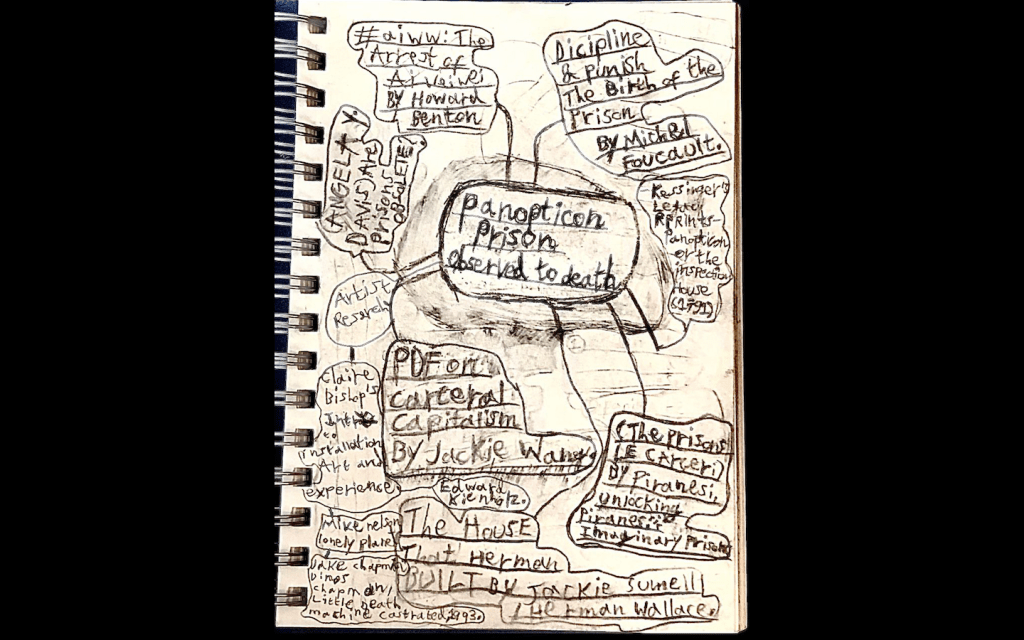 #aiww: The
Arrest of
Ai weiwei
BY Howard
Benton
Dicipline
& punish
The Birth of the
Prison
By Michel
Foucault.
(ANGELA Y.
DAVIS) Are
Prisons
OBSOLETE?
Panopticon
Prison
observed to death
Kessinger's
Legacy
RePRINTS-
Panopticon
or the
inspection
House
(1791)
Artist
Research
PDF on
carceral
capitalism
BY Jackie Wang
Claire
Bishop's
to
installation
Art and
experience.
Edward
Kienholz.
(The prisons)
LE CARCERI
BY Piranesi,
unlocking
Piranesi's
Imaginary Prisons
Mike nelson
lonely planet
The House
That Herman
BUILT BY Jackie sumell
/Herman Wallace.
Jake chapman
Dinos
chapman/
Little Death
machine castrated,1993.